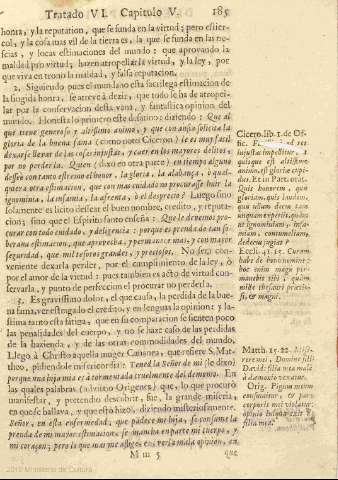 Tratado VI. Capitulo V. 185
honra, y la reputacion, que se funda en la virtud; pero estier-
col, y la cosa mas vil de la tierra es, la que se funda en las no-
cias, y locas estimaciones del mundo: que aprovando la
maldad por virtud, hazen atropellar la virtud, y la ley, por
que viva en trono la maldad, y falsa reputacion.
2. Siguiendo pues el mundano esta sacrilega estimacion de
la fingida honra, se atreve à dezir, que todo se ha de atrope-
llar por la conservacion desta vana, y fantastica opinion del
mundo. Honesta lo primero este desatino: diziendo: Que al
que tiene generoso y altissimo animo, y que con ansia solicita la
gloria de la buena fama (como notò Ciceron) le es muy facil
dexarse llevar de las cosas injustas, y caer en los mayores delitos,
por no perderla. Quien (dixo en otra parte) en tiempo alguno
dessea con tanto estremo el honor, la gloria, la alabança, ò qual-
quiera otra estimacion, que con mas cuidado no procurasse huir la
ignominia, la infamia, la afrenta, ò el desprecio? Luego no
solamente es licito dessear el buen nombre, credito, y reputa-
cion; sino que el Espiritu santo enseña: Que le devemos pro-
curar con todo cuidado, y deligencia: porque es prenda de tan so-
berana estimacion, que aprovecha, y permanece mas, y con mayor
seguridad, que mil tesoros grandes, y preciosos. No son con-
veniente dexarla perder, por el cumplimiento de la ley, ò
por el amor de la virtud: pues tambien es acto de virtud con-
servarla, y punto de perfeccion el procurar no perderla.
3. Es gravissimo dolor, el que causa, la perdida de la bue-
na fama, ver estragado el credito, y en lengua la opinion: y la-
stima tanto esta fatiga, que en su comparacion se sienten poco
las penalidades del cuerpo, y no se haze caso de las perdidas
de la hazienda, y de las otras commodidades del mundo.
Llegò à Christo aquella muger Cananea, que refiere S. Mat-
theo, pidiendole misericordia: Tened la Señor de mi (le dixo)
porque una hija mia es atormentada cruelmente del demonio. En
las quales palabras (advirtio Origenes) que, lo que procurò
manifestar, y pretendio descubrir, fue, la grande miseria,
en que se hallava, y que esto hizo, diziendo misteriosamente.
Señor, en esta enfermedad, que padece mi hija, se consume la
prenda de mi mayor estimacion, se mancha en parte mi cuerpo, y
mi coraçon; pero lo que mas me aflige, es, perder la mala opinion, en
M m 5 que
Cicero. lib. 1. de Of-
fic. ad res
injustas impellitur,
quisque est altissimo
animo, est gloriæ cupi-
dus. Et in Part. orat.
Quis honorem, quis
gloriam, quis laudem,
quis ullum decus tam
unquam expetit, quàm
ut ignominiam, in-
famiam, contumeliam,
dedecus fugiat?
Eccli. 41. 15. Curam
habe de bono nomine:
hoc enim magis per-
manebit tibi, quàm
mille thesauri pretio-
si, & magni.
Matth. 15. 22. Mise-
rere mei, Domine fili
David: filia mea malè
à dæmonio vexatur.
Orig.
2010 Ministerio de Cultura